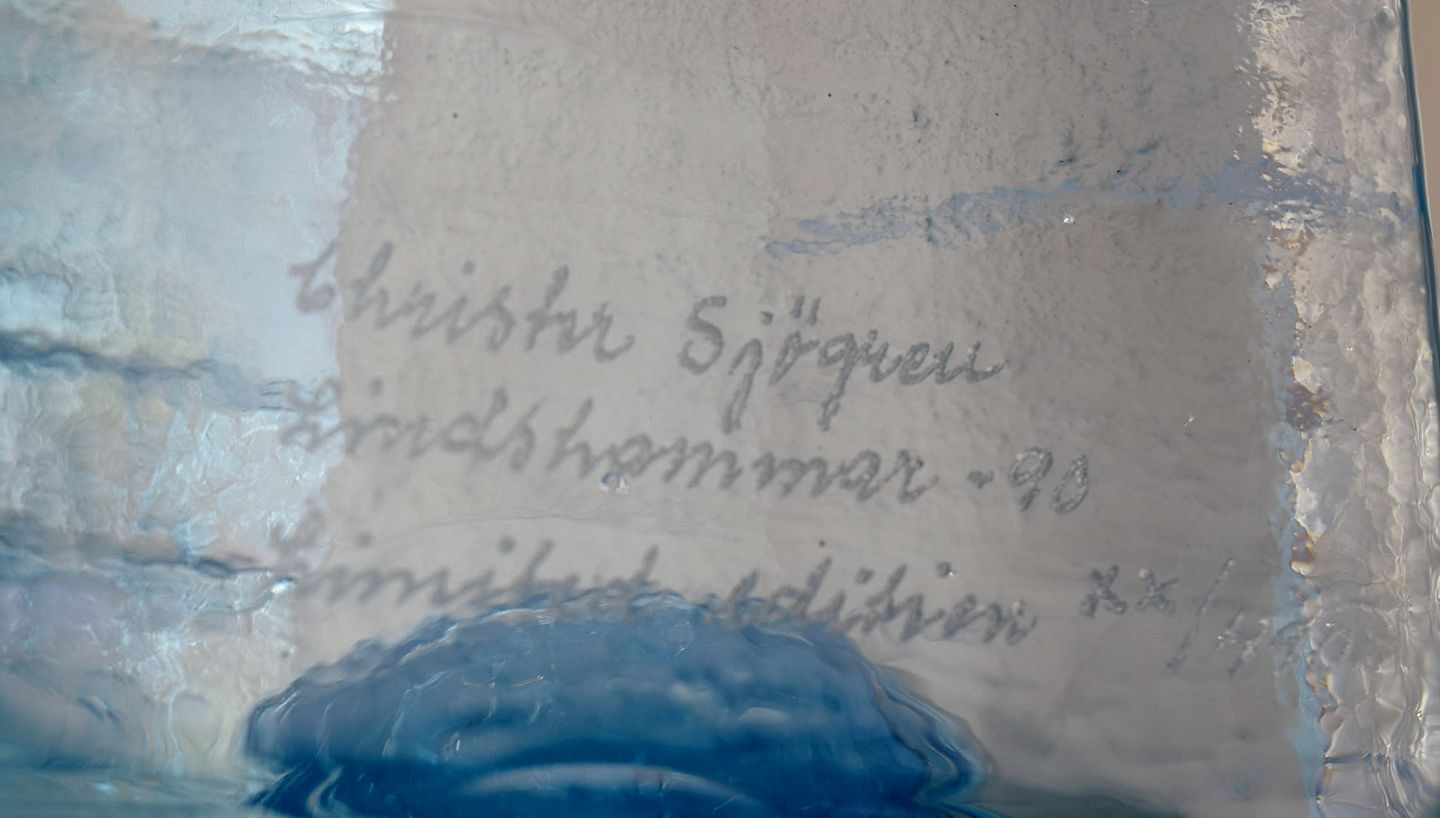 Christer Sjögren
Lindshammar -90
Limited edition xx/